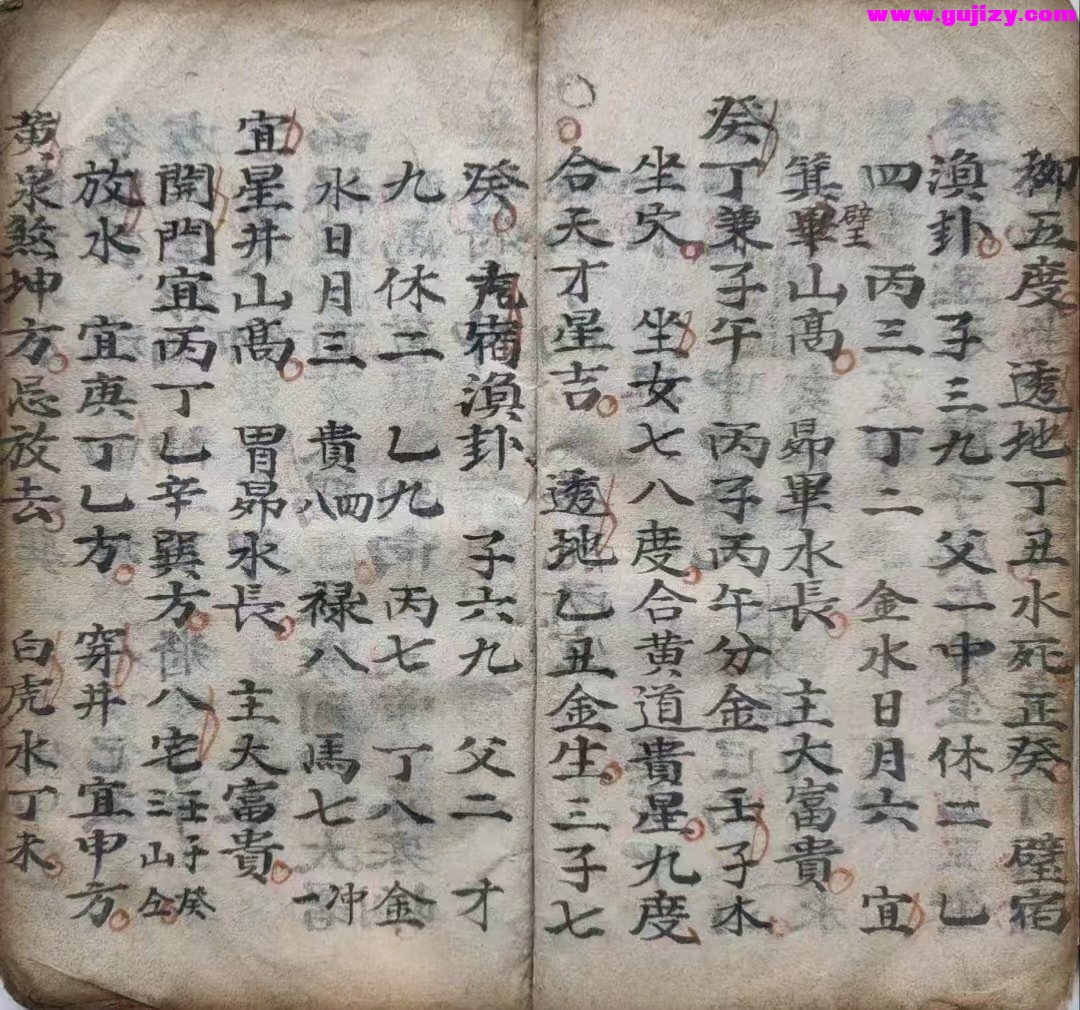 www.gujizy.com
柳五度 透地丁丑水死正癸下壁宿
滇卦 子三九 父一申 休二 乙
四 丙三 丁二 金水日月六 宜
箕畢壁王山高 昴畢水長 主大富貴
癸丁兼子午 丙子丙午分金 壬子木
坐穴 坐女七八度合黄道貴星九度
合天才星吉 透地乙丑金生三子七
癸 宿滇卦 子六九 父二 才
九 休二 乙九 丙七 丁八 金
水日月三 貴四八 禄八 馬七 冲一
宜星井山高 胃昴水長 主大富貴
開門宜丙丁乙辛巽方 八宅壬子癸三山仝
放水 宜庚丁乙方 穿井 宜申方
黄泉煞坤方忌放去 白虎水丁未